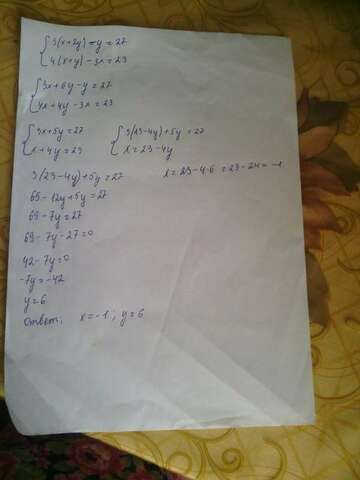 3(x+2y)-y=27
4(x+y)-3x=23
3x+6y-y=27
4x+4y-3x=23
3x+5y=27
x+4y=23
3(23-4y)+5y=27
x=23-4y
3(23-4y)+5y=27
x=23-4·6=23-24=-1
69-12y+5y=27
69-7y=27
69-7y-27=0
42-7y=0
-7y=-42
y=6
Ответ: x=-1; y=6